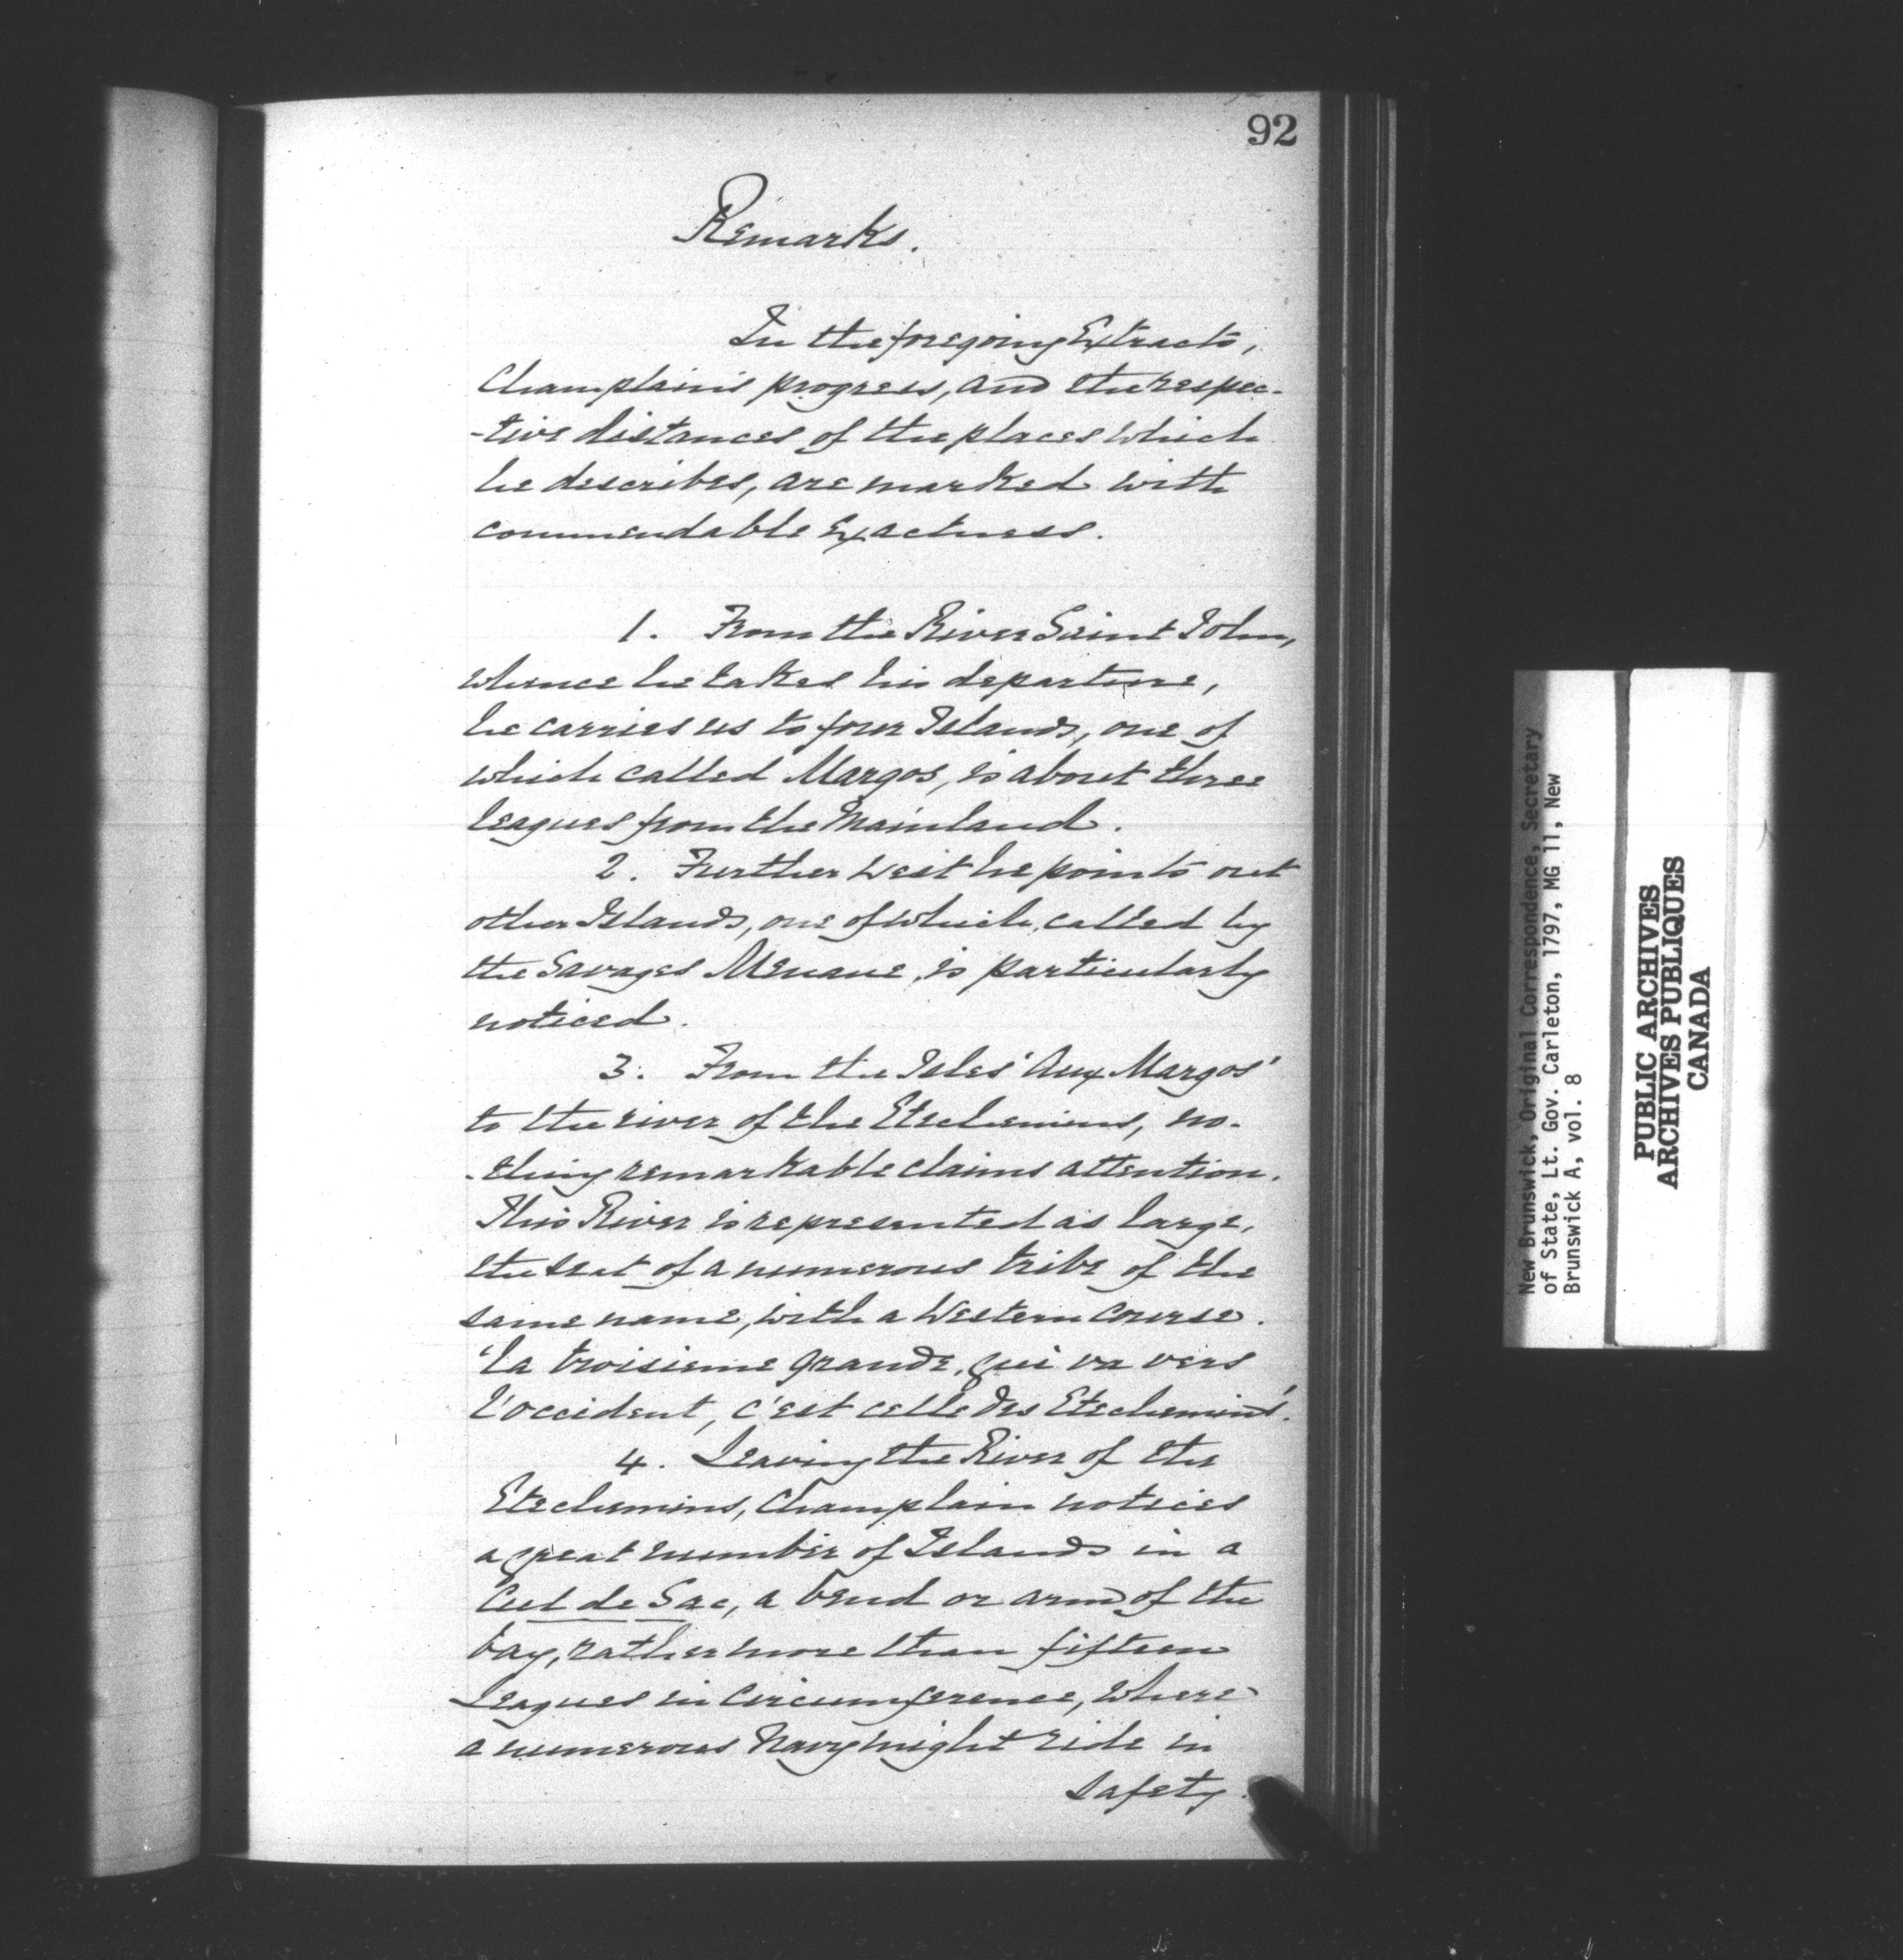 92
Remarks.
In the foregoing Extracts,
Champlain's progress, and the respec-
-tive distances of the places which
he describes, are marked with
commendable Exactness.
1. From the River Saint John,
whence he takes his departure,
he carries us to four Islands, one of
which called Margos, is about three
leagues from the Mainland.
2. Further West he points out
other Islands, one of which, called by
the Savages Menane, is particularly
noticed.
3. From the Isles 'Aux Margos'
to the river of the Etechemins, no-
-thing remarkable claims attention.
This River is represented as large,
the seat of a numerous tribe of the
same name, with a Western Course.
'La troisieme grande, qui va vers
l'occident, c'est celle des Etechemins'.
4. Leaving the River of the
Etechemins, Champlain notices
a great number of Islands in a
Cul de Sac, a bend or arm of the
bay, rather more than fifteen
Leagues in Circumference, where
a numerous Navy might ride in
safety.
New Brunswick, Original Correspondence, Secretary
of State, Lt. Gov. Carleton, 1797, MG 11, New
Brunswick A, vol. 8
PUBLIC ARCHIVES
ARCHIVES PUBLIQUES
CANADA